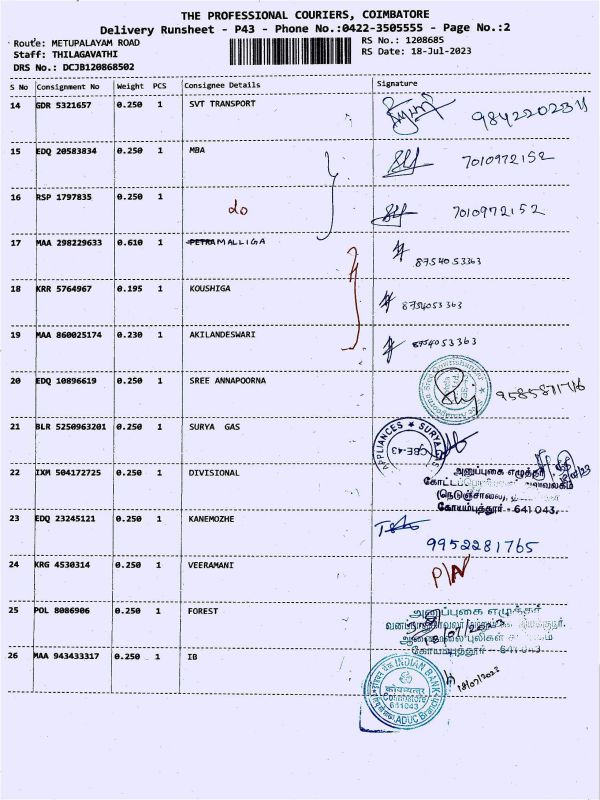 THE PROFESSIONAL COURIERS, COIMBATORE
Delivery Runsheet - P43 - Phone No.:0422-3505555 - Page No.:2
Route: METUPALAYAM ROAD RS No.: 1208685
Staff: THILAGAVATHI RS Date: 18-Jul-2023
DRS No.: DCJB120868502
S No Consignment No Weight PCS Consignee Details Signature
14 GDR 5321657 0.250 1 SVT TRANSPORT
15 EDQ 20583834 0.250 1 MBA 7010972152
16 RSP 1797835 0.250 1 do 7010972152
17 MAA 298229633 0.610 1 PETRA MALLIGA 8754053363
18 KRR 5764967 0.195 1 KOUSHIGA 8754053363
19 MAA 860025174 0.230 1 AKILANDESWARI 8754053363
20 EDQ 10896619 0.250 1 SREE ANNAPOORNA
21 BLR 5250963201 0.250 1 SURYA GAS APPLIANCES * SURYA GAS * CBE-43
22 IXM 504172725 0.250 1 DIVISIONAL அனுப்புகை எழுத்தர்
(நெடுஞ்சாலை),
கோயம்புத்தூர் - 641 043.
23 EDQ 23245121 0.250 1 KANEMOZHE 9952281765
24 KRG 4530314 0.250 1 VEERAMANI P/N
25 POL 8086906 0.250 1 FOREST அனுப்புகை எழுத்தர்
18/07/2023
கோயம்புத்தூர் - 641 043.
26 MAA 943433317 0.250 1 IB INDIAN BANK
Coimbatore
641043
ADUC Branch
18/07/2023